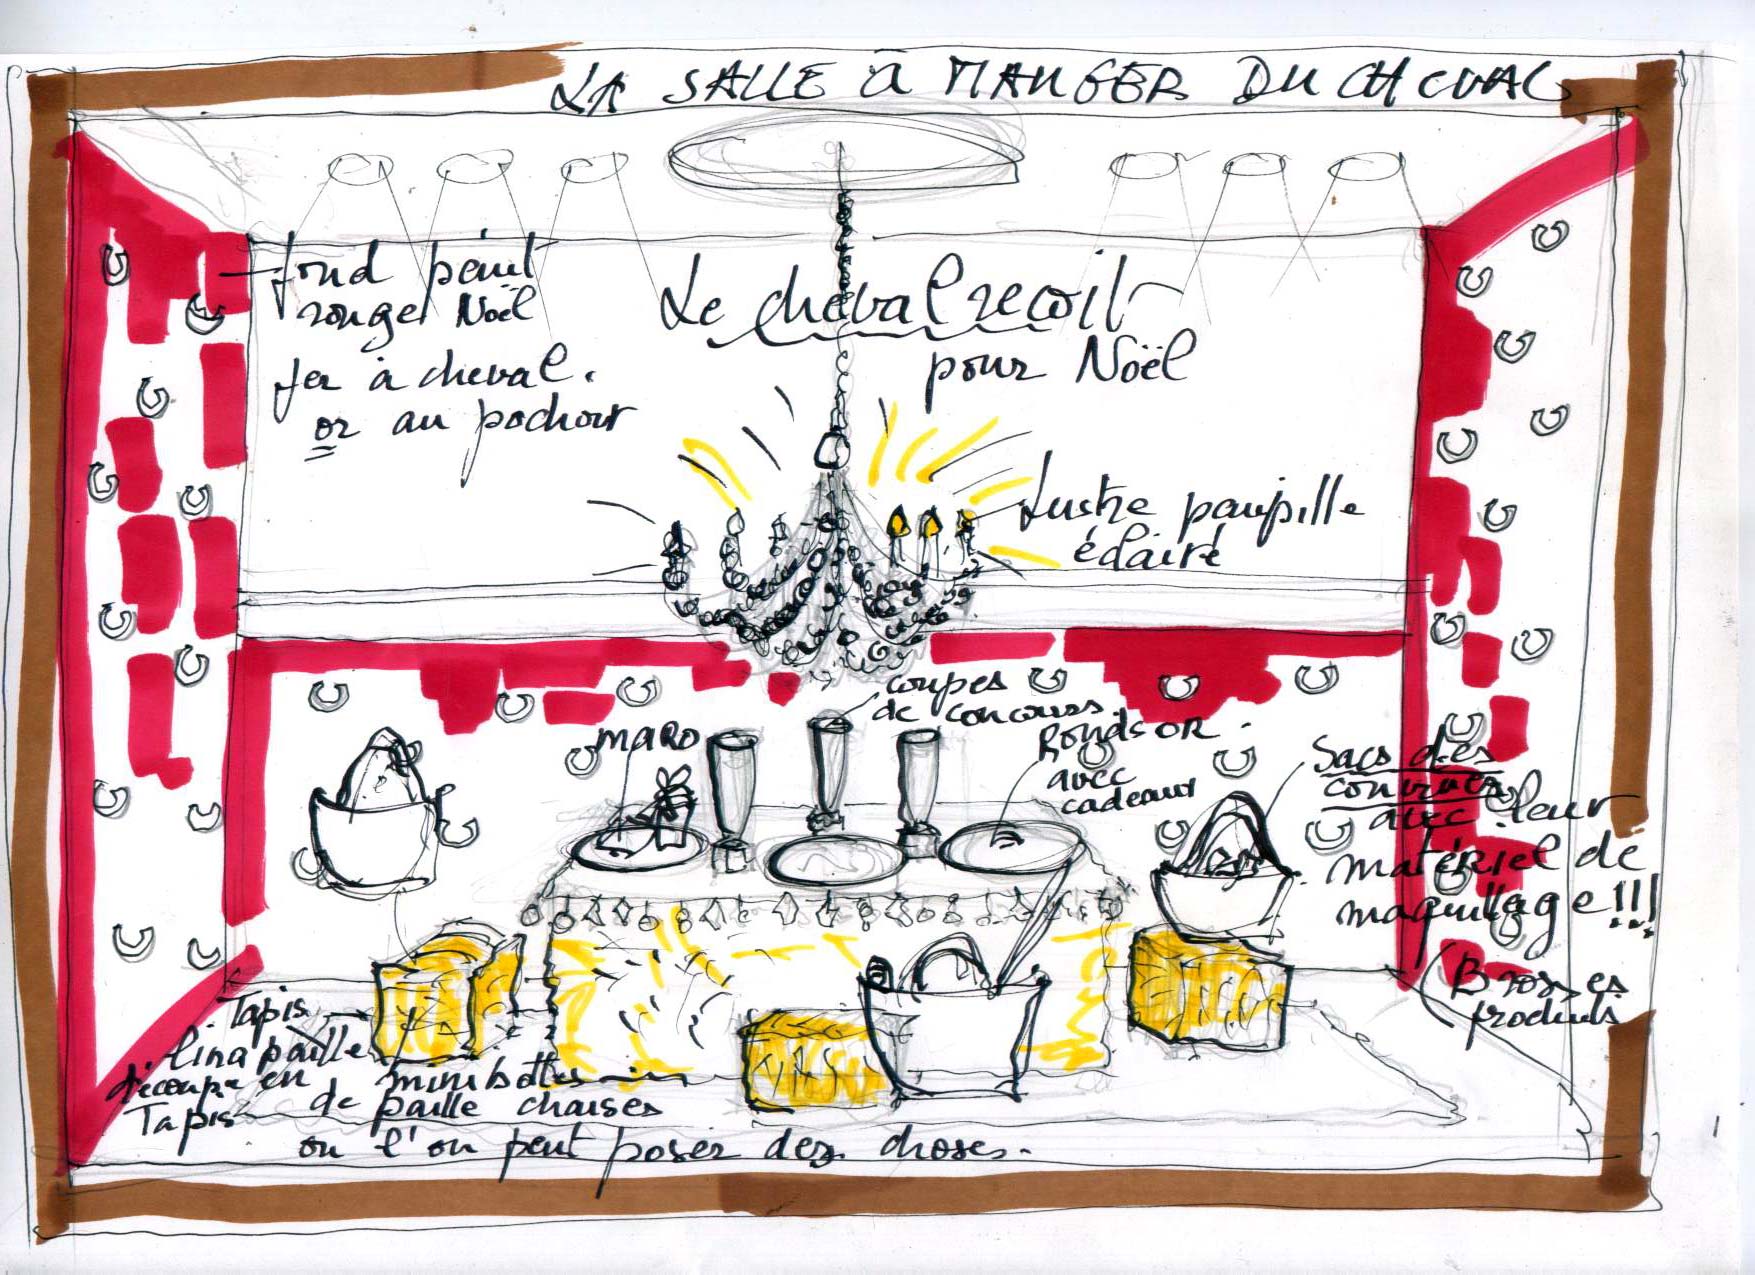 LA SALLE à MANGER DU CHEVAL
fond peint
rouge Noël
fer à cheval.
or au pochoir
Le cheval reçoit
pour Noël
Lustre pampille
éclairé
coupes
de concours
MARO
Ronds OR.
avec
cadeaux
Sacs des
convives
avec leur
matériel de
maquillage!!!
(Brosses
produits
Tapis
paille
découpe en
Tapis
mini bottes
de paille chaises
ou l'on peut poser des choses.